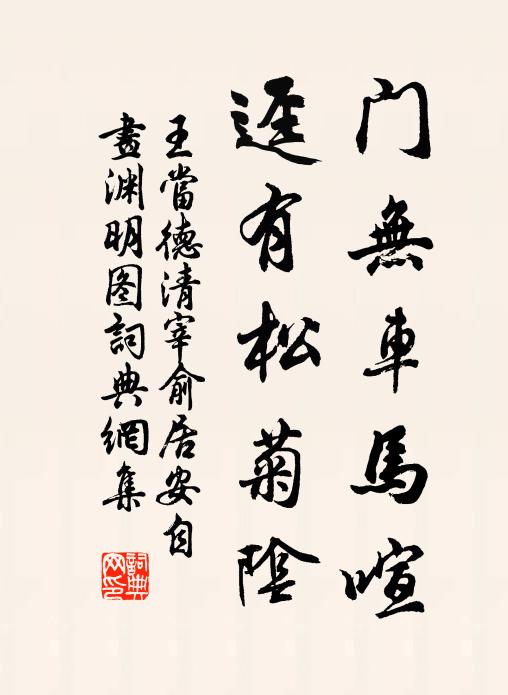 門無車馬喧
逕有松菊陰
王當德清宰俞居安自
畫渊明图詞典網集
詞典
网印